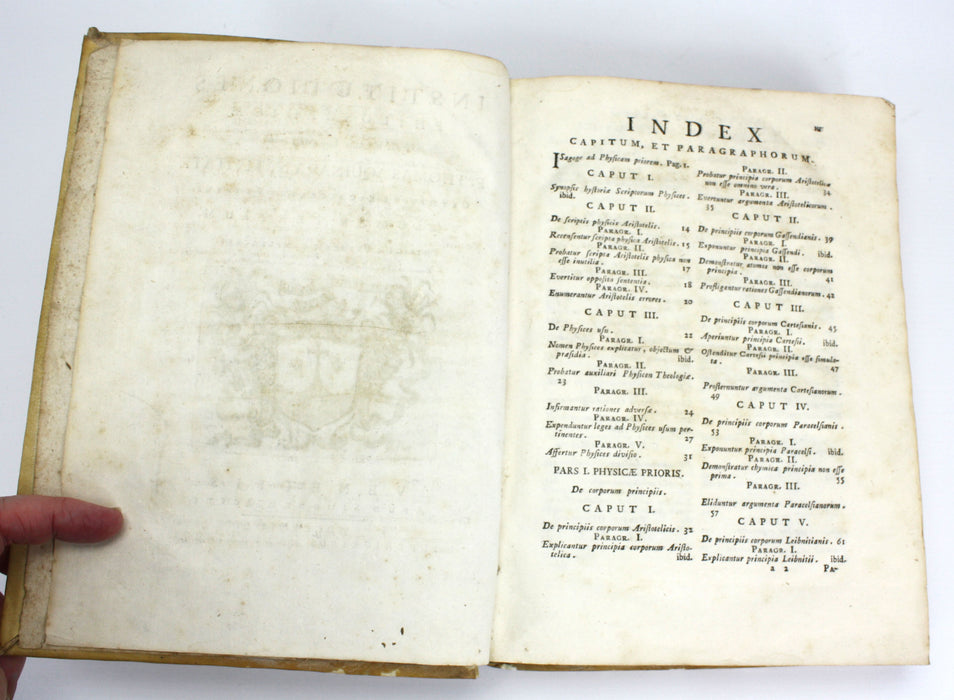 INDEX
CAPITUM, ET PARAGRAPHORUM.
ISagoge ad Physicam priorem. Pag. 1.
CAPUT I.
Synopsis hystoriæ Scriptorum Physices.
ibid.
CAPUT II.
De scriptis physicis Aristotelis. 14
PARAGR. I.
Recensentur scripta physica Aristotelis. 15
PARAGR. II.
Probatur scripta Aristotelis physica non
esse inutilia. 17
PARAGR. III.
Evertitur opposita sententia. 18
PARAGR. IV.
Enumerantur Aristotelis errores. 20
CAPUT III.
De Physices usu. 22
PARAGR. I.
Nomen Physices explicatur, objectum &
præsidia. ibid.
PARAGR. II.
Probatur auxiliari Physicen Theologiæ.
23
PARAGR. III.
Infirmantur rationes adversæ. 24
PARAGR. IV.
Expenduntur leges ad Physices usum per-
tinentes. 27
PARAGR. V.
Affertur Physices divisio. 31
PARS I. PHYSICÆ PRIORIS.
De corporum principiis.
CAPUT I.
De principiis corporum Aristotelicis. 32
PARAGR. I.
Explicantur principia corporum Aristo-
telica. ibid.
PARAGR. II.
Probatur principia corporum Aristotelica
non esse omnino vera. 34
PARAGR. III.
Evertuntur argumenta Aristotelicorum.
35
CAPUT II.
De principiis corporum Gassendianis. 39
PARAGR. I.
Exponuntur principia Gassendi. ibid.
PARAGR. II.
Demonstratur, atomos non esse corporum
principia. 41
PARAGR. III.
Profligantur rationes Gassendianorum. 42
CAPUT III.
De principiis corporum Cartesianis. 45
PARAGR. I.
Aperiuntur principia Cartesii. ibid.
PARAGR. II.
Ostenditur Cartesii principia esse simula-
ta. 47
PARAGR. III.
Prosternuntur argumenta Cartesianorum.
49
CAPUT IV.
De principiis corporum Paracelsianis.
53
PARAGR. I.
Exponuntur principia Paracelsi. ibid.
PARAGR. II.
Demonstratur chymica principia non esse
prima. 55
PARAGR. III.
Eliduntur argumenta Paracelsianorum.
57
CAPUT V.
De principiis corporum Leibnitianis. 61
PARAGR. I.
Explicantur principia Leibnitii. ibid.
a 2 PA-